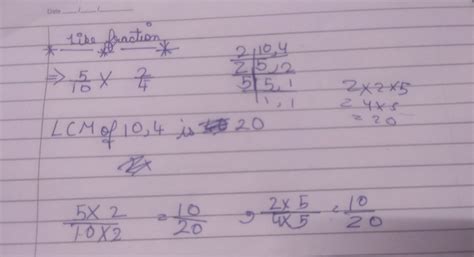 Date
* Like fraction *
⇒ 5/10 × 2/4
2 | 10, 4
2 | 5, 2
5 | 5, 1
1, 1
2 × 2 × 5
= 4 × 5
= 20
LCM of 10, 4 is 20
5 × 2 / 10 × 2 = 10/20 , 2 × 5 / 4 × 5 = 10/20